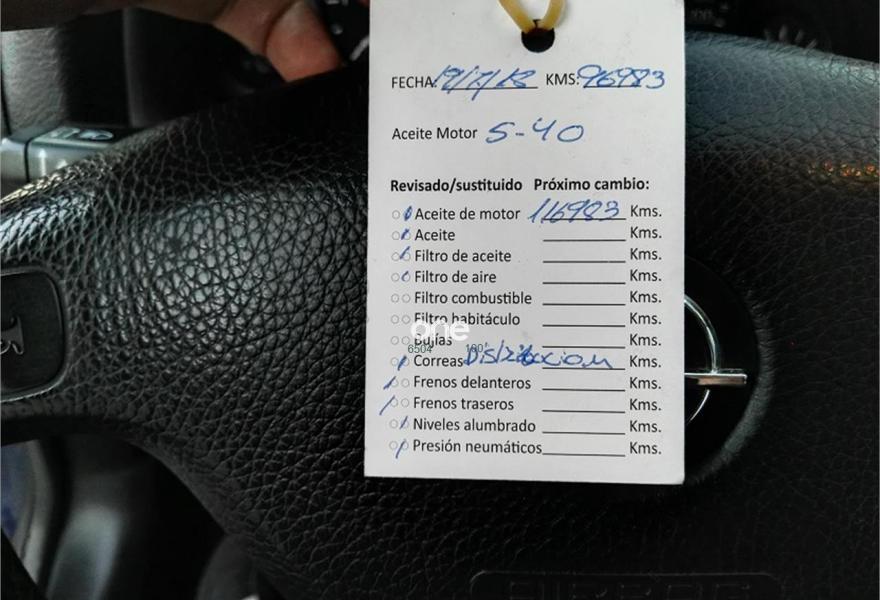 FECHA: 19/7/18 KMS: 96983
Aceite Motor 5-40
Revisado/sustituido Próximo cambio:
Aceite de motor 116983 Kms.
Aceite Kms.
Filtro de aceite Kms.
Filtro de aire Kms.
Filtro combustible Kms.
Filtro habitáculo Kms.
one
Bujías Kms.
6504 100
Correas Distribucion Kms.
Frenos delanteros Kms.
Frenos traseros Kms.
Niveles alumbrado Kms.
Presión neumáticos Kms.